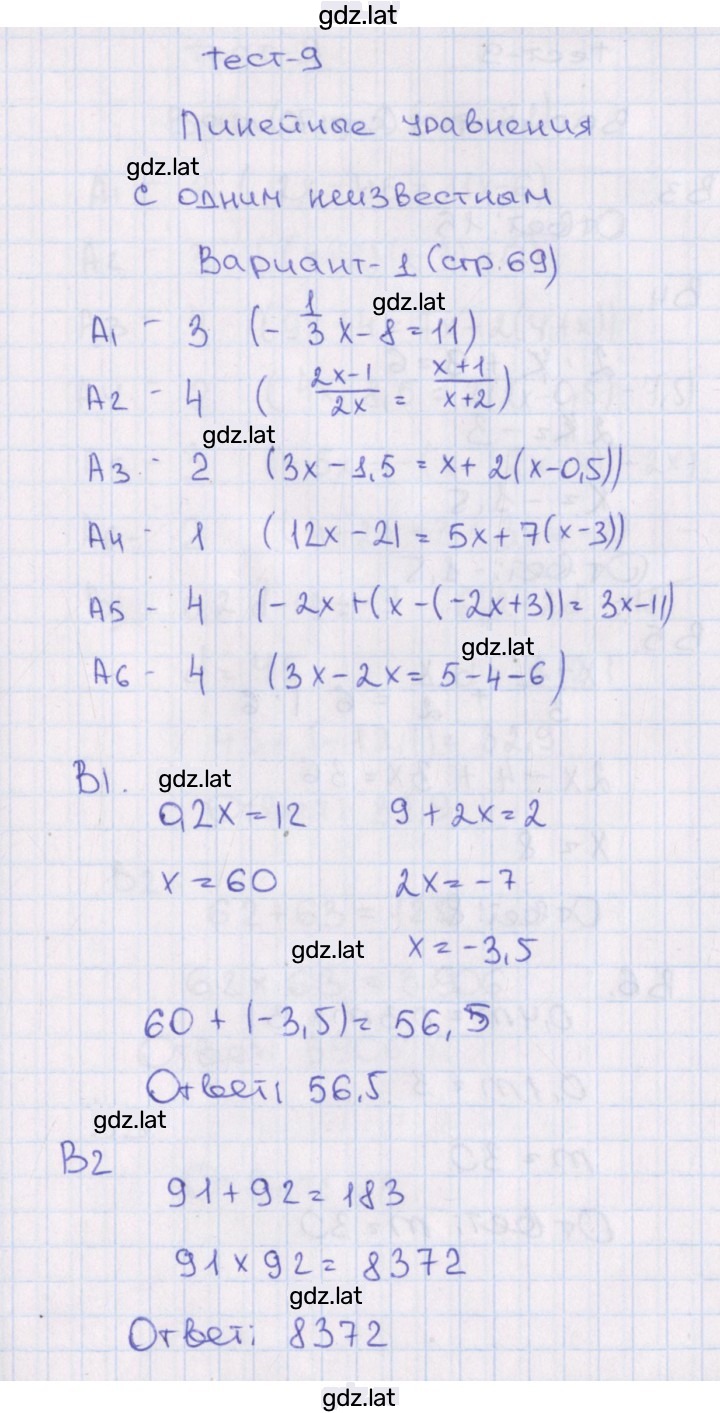 gdz.lat
Тест-9
Линейные уравнения
gdz.lat
с одним неизвестным
Вариант-1 (стр.69)
gdz.lat
A1 - 3 (-1/3 x-8=11)
A2 - 4 ( 2x-1/2x = x+1/x+2 )
gdz.lat
A3 - 2 (3x-1,5 = x+2(x-0,5))
A4 - 1 (12x-21 = 5x+7(x-3))
A5 - 4 (-2x+(x-(-2x+3))= 3x-11)
gdz.lat
A6 - 4 (3x-2x= 5-4-6)
B1. gdz.lat
0,2x=12 9+2x=2
x=60 2x=-7
gdz.lat x=-3,5
60+(-3,5)= 56,5
Ответ: 56,5
gdz.lat
B2
91+92=183
91×92= 8372
gdz.lat
Ответ: 8372
gdz.lat